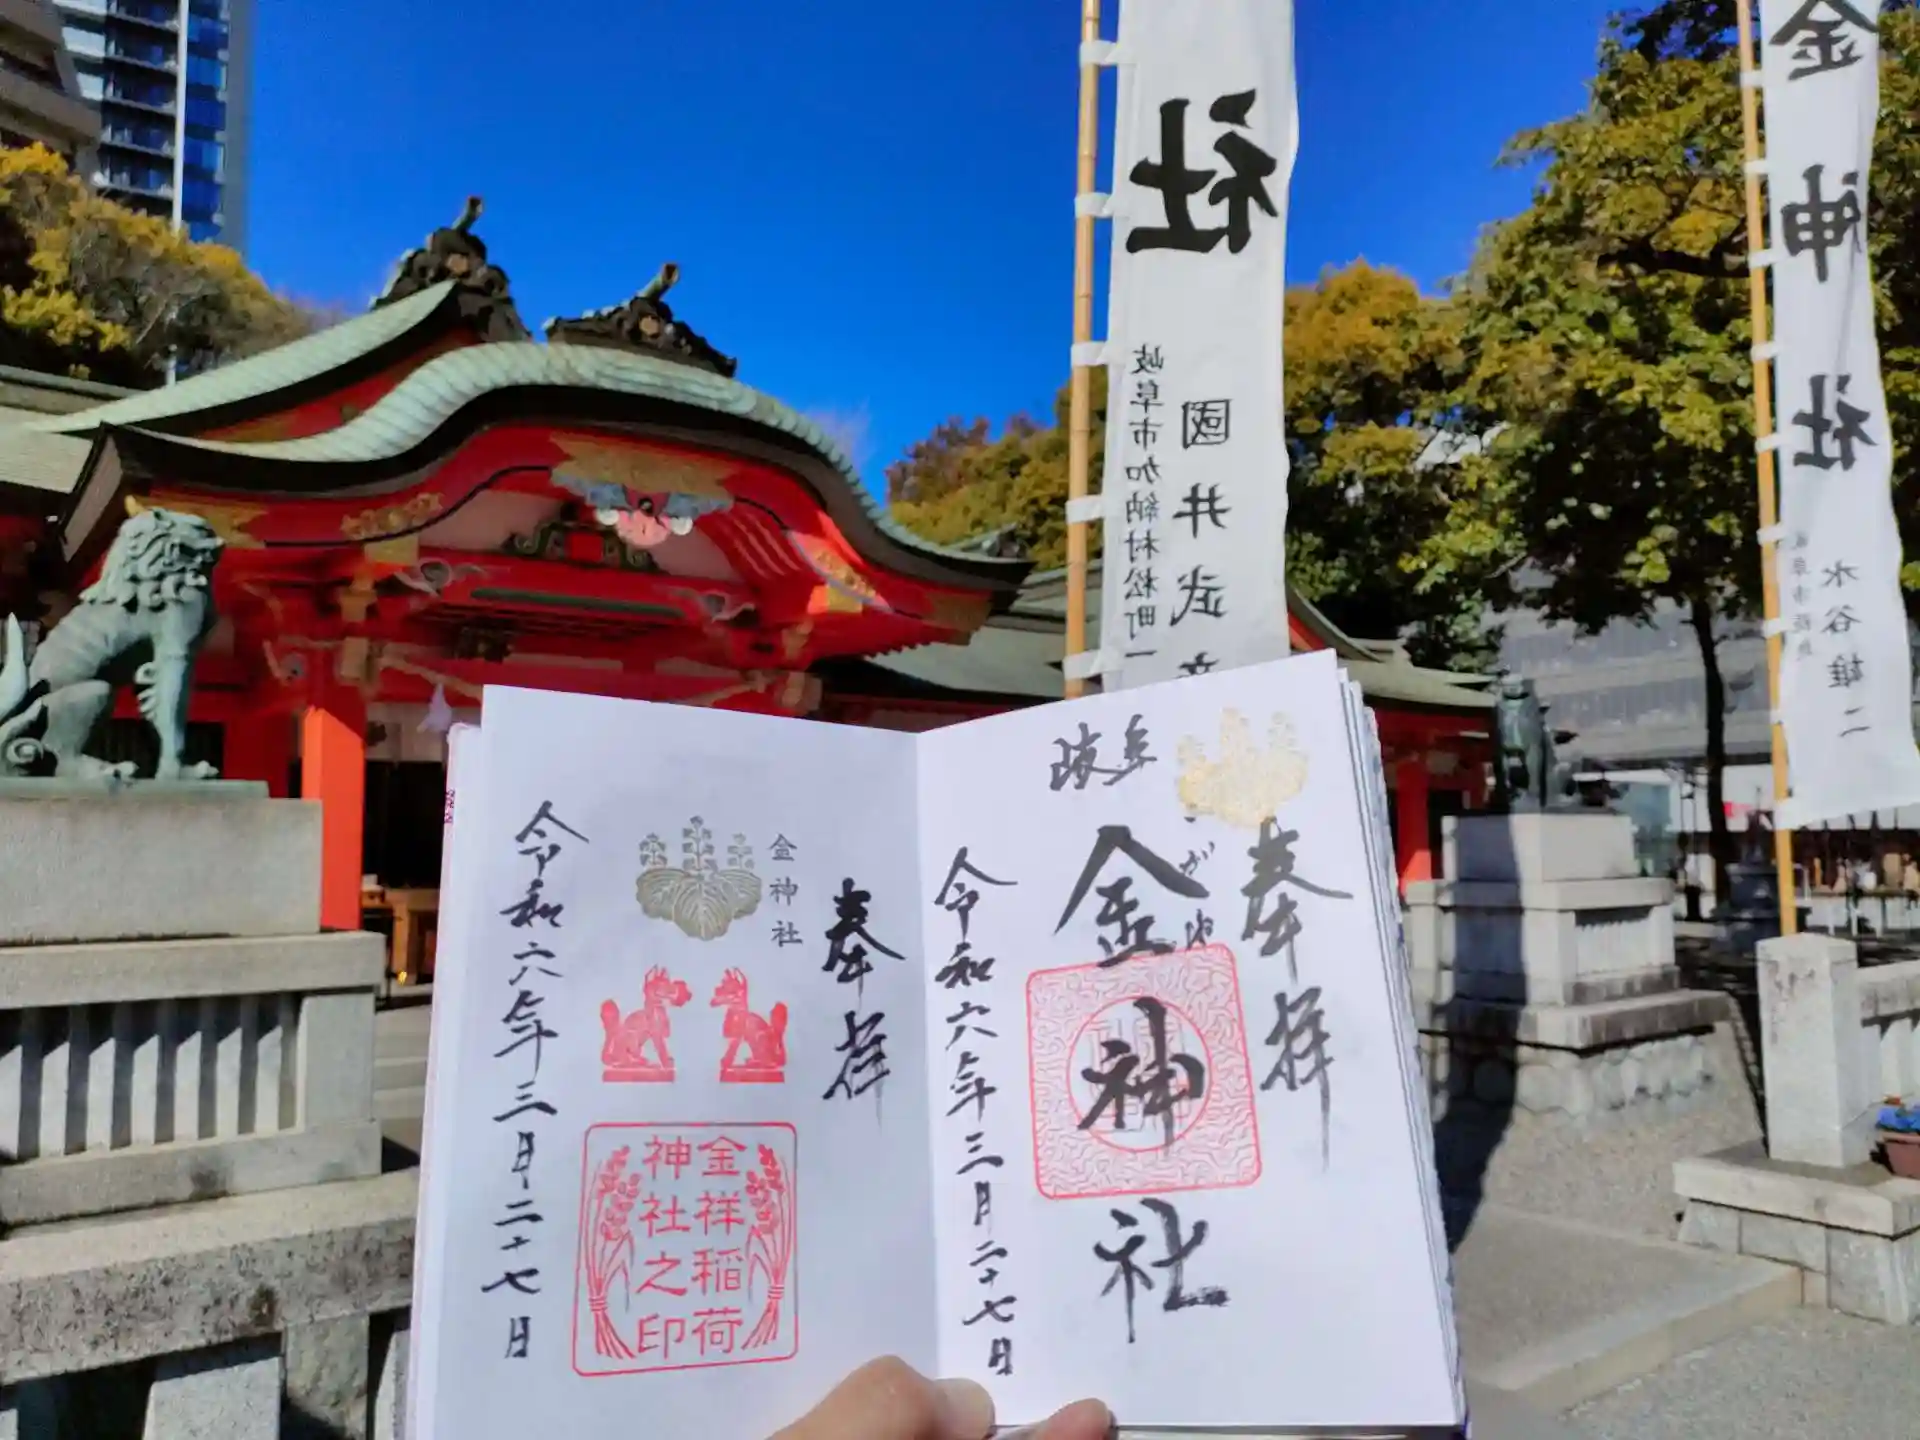 金神社
水谷雄二
社
國井武
岐阜市加納村松町一
奉拝
岐阜
金神社
こがね
令和六年三月二十七日
奉拝
金神社
金祥稲荷
神社之印
令和六年三月二十七日